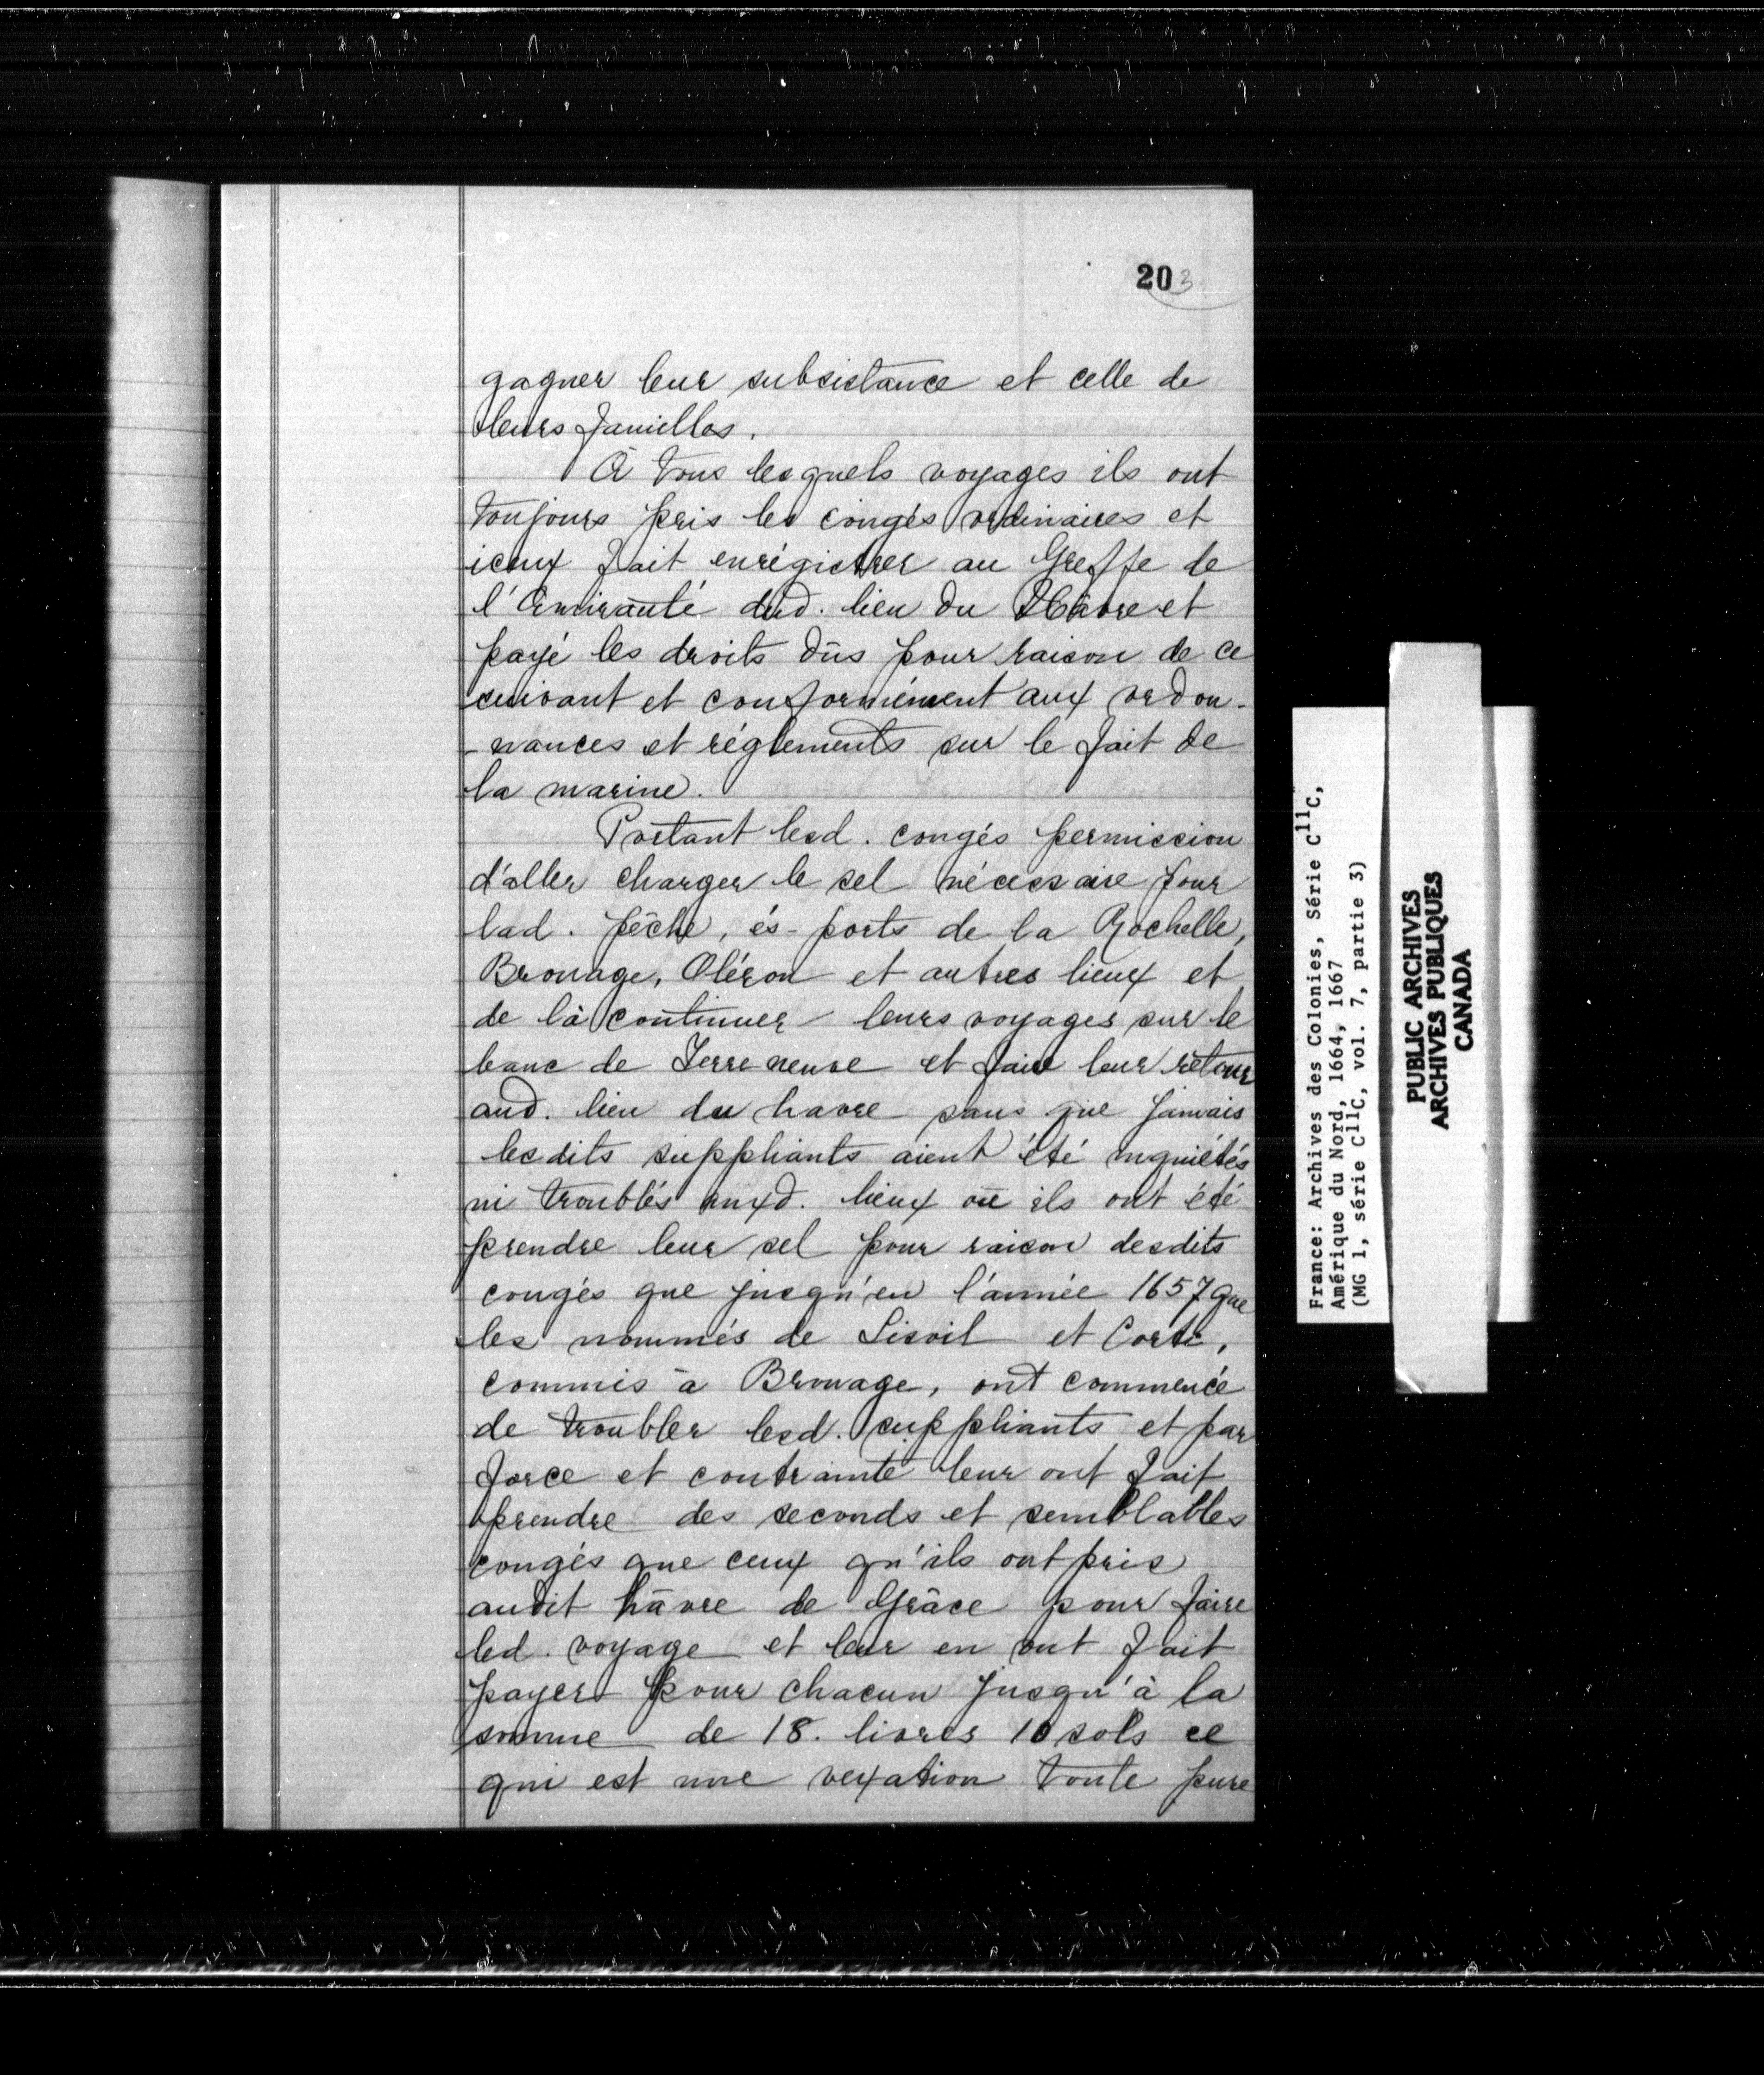 203
gagner leur subsistance et celle de
leurs familles.
À tous lesquels voyages ils ont
toujours pris les congés ordinaires et
iceux fait enrégistrer au Greffe de
l'Amirauté dud. lieu du Hâvre et
payé les droits dûs pour raison de ce
suivant et conformément aux ordon-
-nances et réglements sur le fait de
la marine.
Portant lesd. congés permission
d'aller charger le sel nécessaire pour
lad. pêche, és-ports de la Rochelle,
Brouage, Oléron et autres lieux et
de là continuer leurs voyages sur le
banc de Terre neuve et faire leur retour
aud. lieu du havre sans que jamais
lesdits suppliants aient été inquiétés
ni troublés auxd. lieux où ils ont été
prendre leur sel pour raison desdits
congés que jusqu'en l'année 1657 que
les nommés de Lisoil et Corte,
commis à Brouage, ont commencé
de troubler lesd. suppliants et par
force et contrainte leur ont fait
prendre des seconds et semblables
congés que ceux qu'ils ont pris
audit hâvre de Grâce pour faire
led. voyage et leur en ont fait
payer pour chacun jusqu'à la
somme de 18. livres 10 sols ce
qui est une vexation toute pure
France: Archives des Colonies, Série C11C,
Amérique du Nord, 1664, 1667
(MG 1, série C11C, vol. 7, partie 3)
PUBLIC ARCHIVES
ARCHIVES PUBLIQUES
CANADA